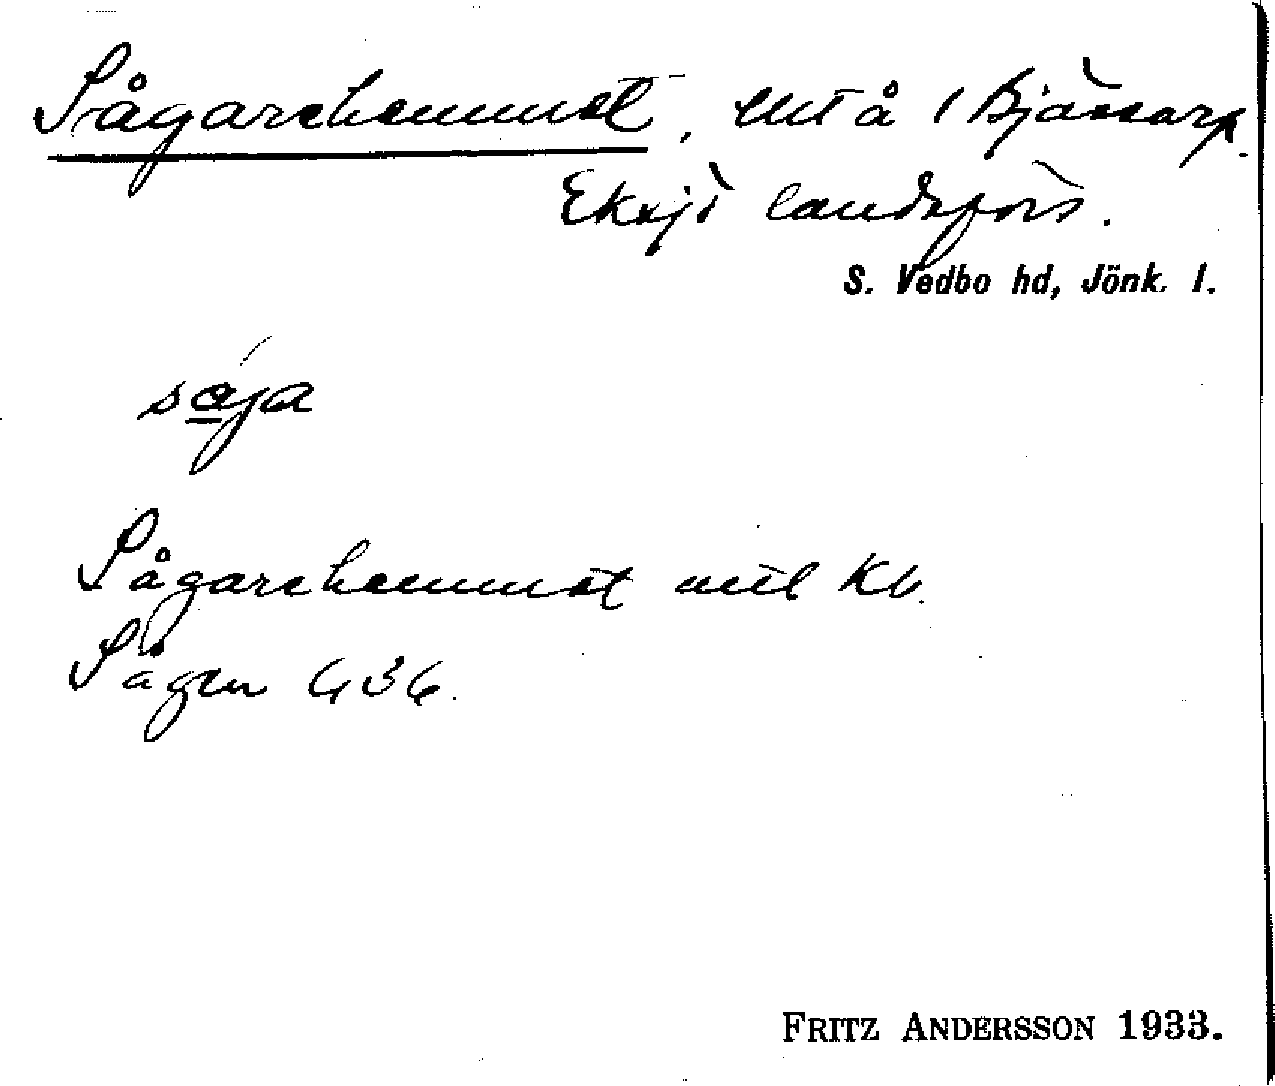 Sågarehemmet, ut å 1 Bjässarp.
Eksjö landsförs.
S. Vedbo hd, Jönk. l.
såja
Sågarehemmet utl Kb.
Sågen G36.
FRITZ ANDERSSON 1933.